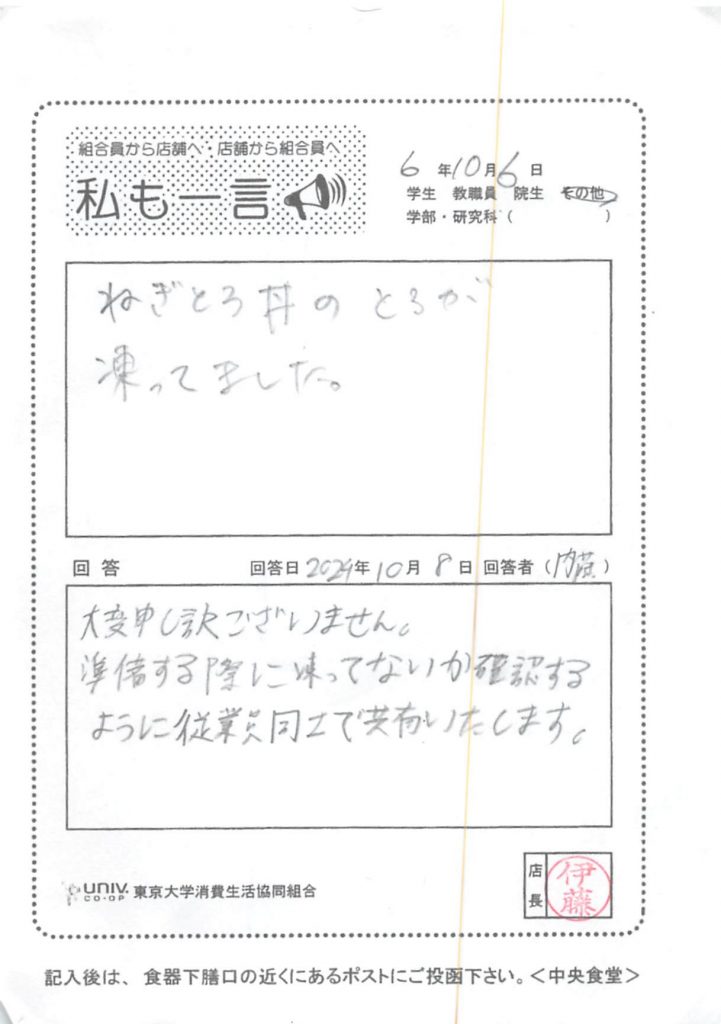 組合員から店舗へ・店舗から組合員へ
私も一言
6年10月6日
学生 教職員 院生 その他
学部・研究科( )
ねぎとろ丼のとろが
凍ってました。
回答 回答日2024年10月8日 回答者(内藤)
大変申し訳ございません。
準備する際に凍ってないか確認する
ように従業員同士で共有いたします。
UNIV. CO-OP 東京大学消費生活協同組合
店長 伊藤
記入後は、食器下膳口の近くにあるポストにご投函下さい。<中央食堂>